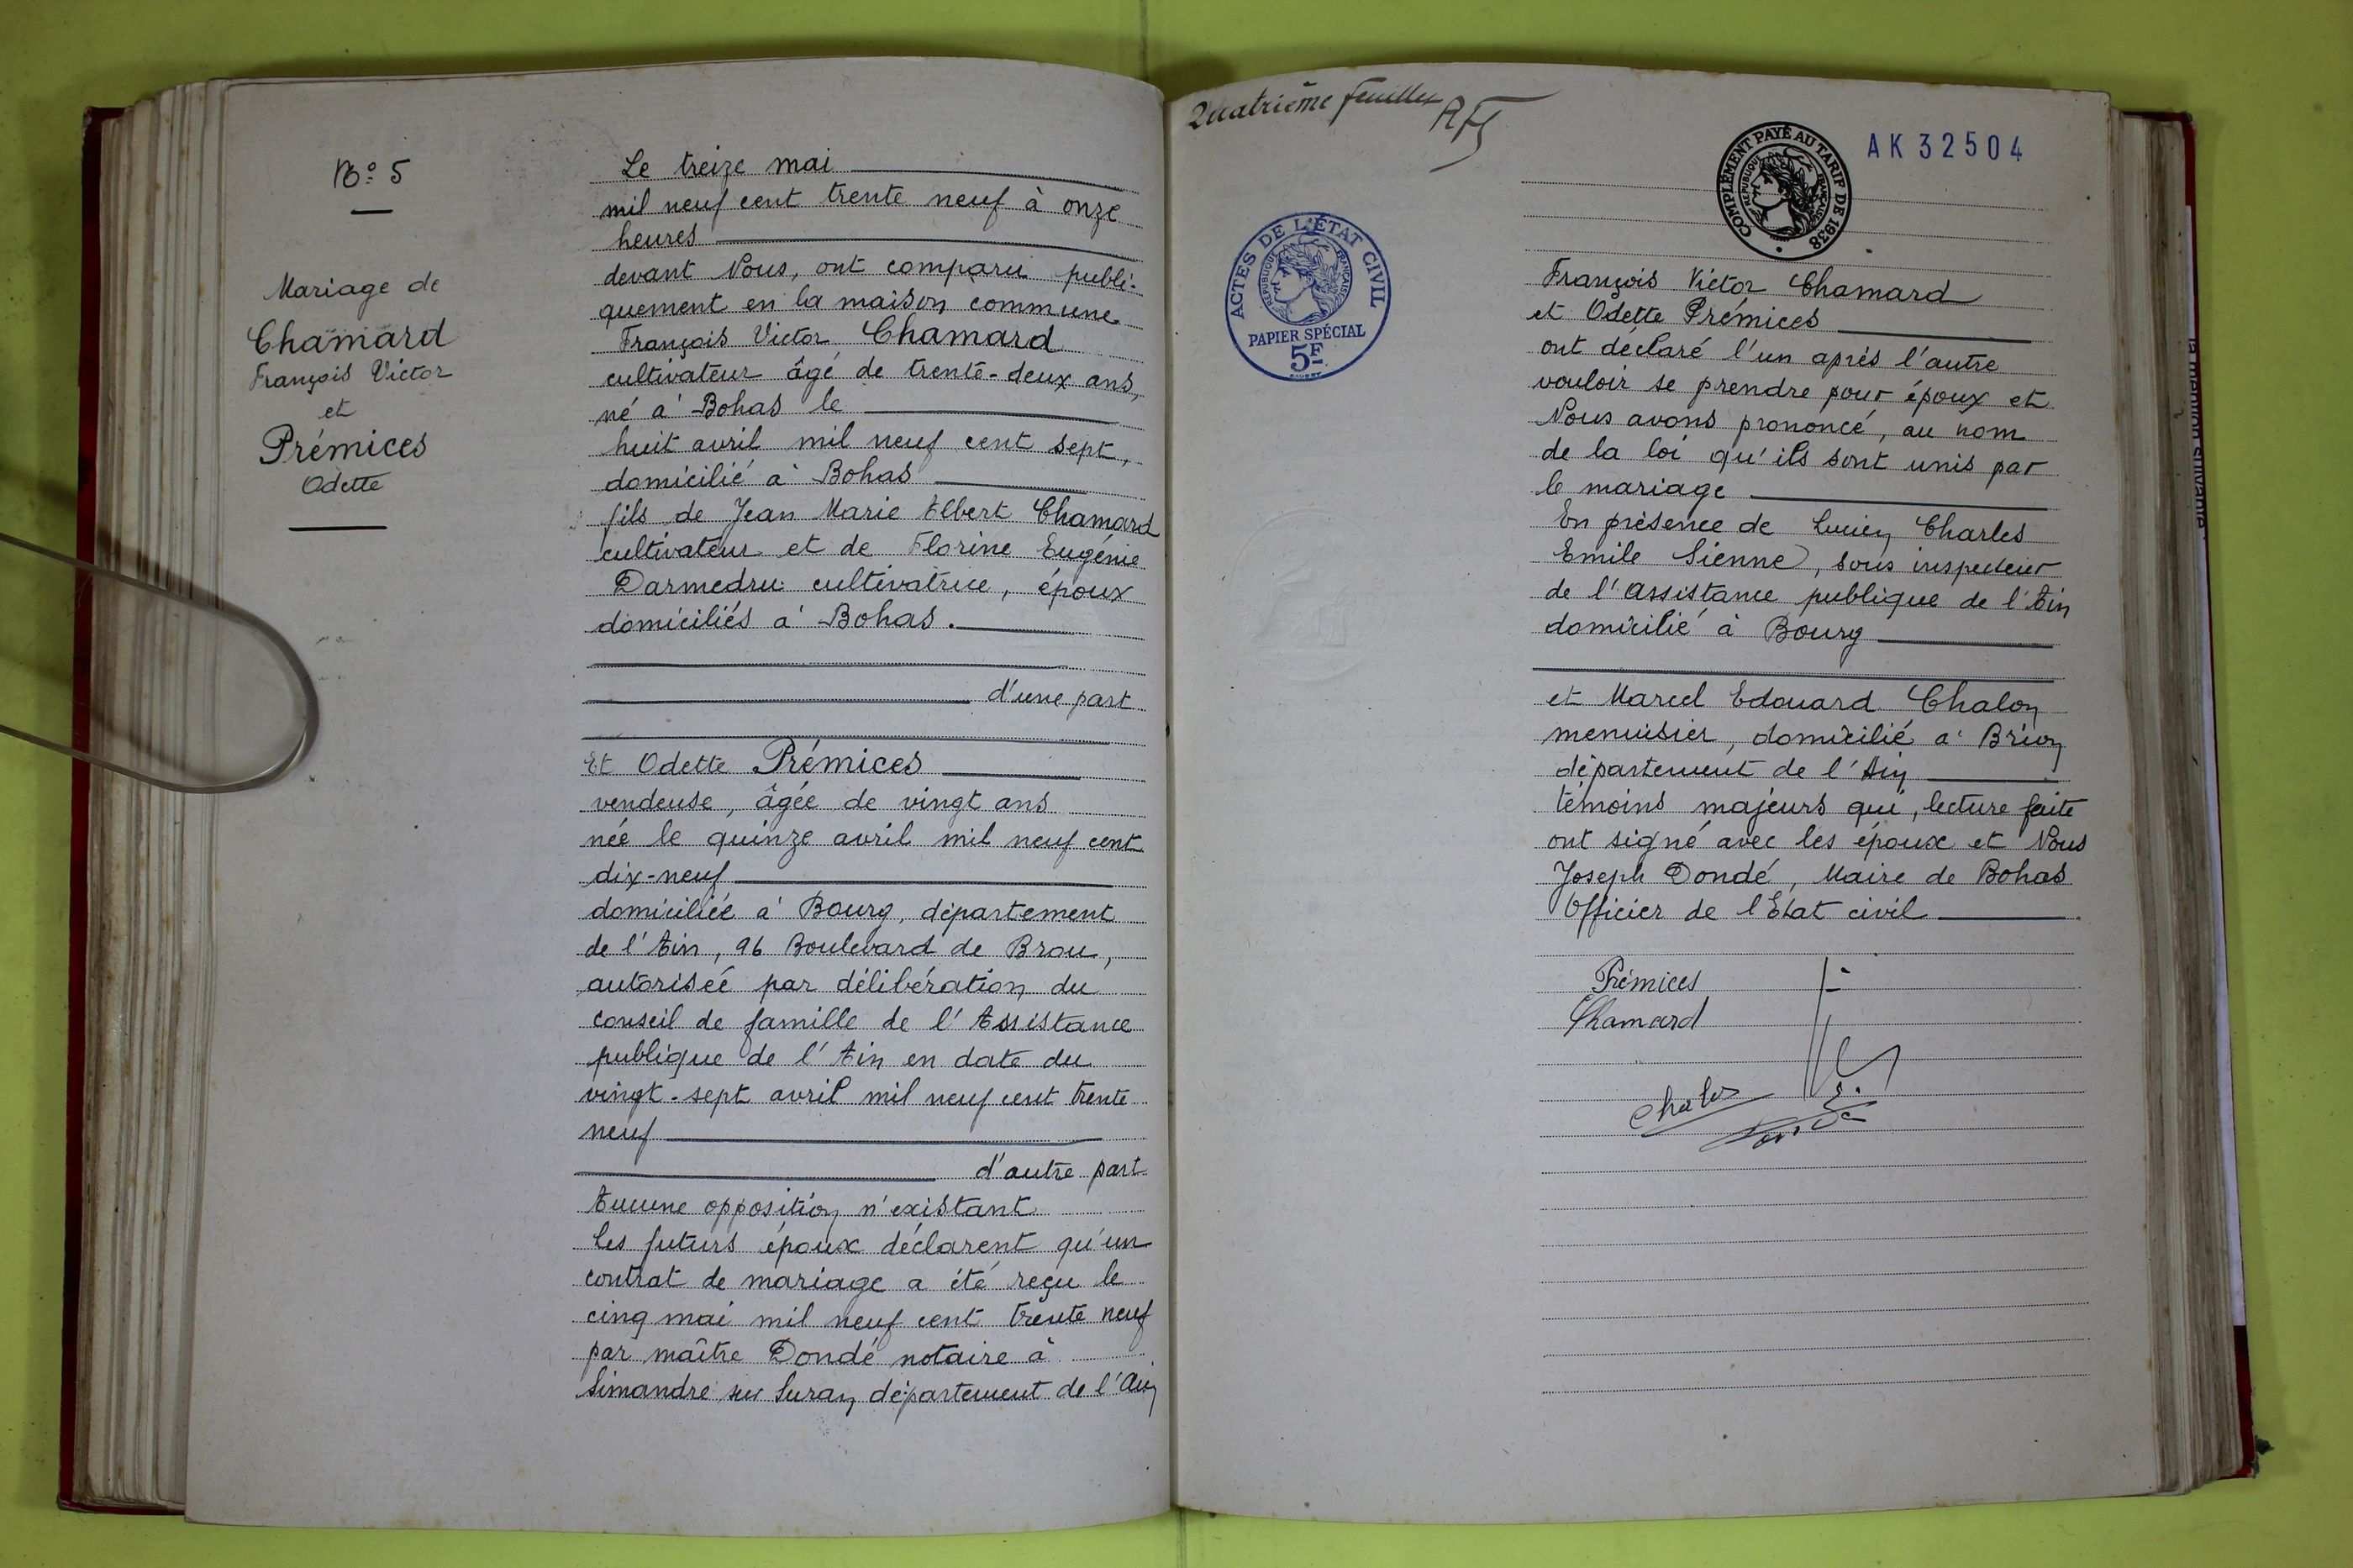 No 5
Mariage de
Chamard
François Victor
et
Prémices
Odette
Le treize mai
mil neuf cent trente neuf à onze
heures
devant Nous, ont comparu publi-
quement en la maison commune
François Victor Chamard
cultivateur âgé de trente-deux ans,
né à Bohas le
huit avril mil neuf cent sept,
domicilié à Bohas
fils de Jean Marie Albert Chamard
cultivateur et de Florine Eugénie
Darmedru cultivatrice, époux
domiciliés à Bohas.
d'une part
Et Odette Prémices
vendeuse, âgée de vingt ans
née le quinze avril mil neuf cent
dix-neuf
domiciliée à Bourg, département
de l'Ain, 96 Boulevard de Brou,
autorisée par délibération du
conseil de famille de l'Assistance
publique de l'Ain en date du
vingt-sept avril mil neuf cent trente
neuf
d'autre part
Aucune opposition n'existant
Les futurs époux déclarent qu'un
contrat de mariage a été reçu le
cinq mai mil neuf cent trente neuf
par maître Dondé notaire à
Simandre sur Suran département de l'Ain
Quatrième feuillet
AK 32504
COMPLÉMENT PAYÉ AU TARIF DE 1938
RÉPUBLIQUE FRANÇAISE
ACTES DE L'ÉTAT CIVIL
RÉPUBLIQUE FRANÇAISE
PAPIER SPÉCIAL
5F
François Victor Chamard
et Odette Prémices
ont déclaré l'un après l'autre
vouloir se prendre pour époux et
Nous avons prononcé, au nom
de la loi qu'ils sont unis par
le mariage
En présence de Lucien Charles
Emile Sienne, sous inspecteur
de l'assistance publique de l'Ain
domicilié à Bourg
et Marcel Edouard Chalon
menuisier, domicilié à Brion
département de l'Ain
témoins majeurs qui, lecture faite
ont signé avec les époux et Nous
Joseph Dondé, Maire de Bohas
Officier de l'Etat civil
Prémices
Chamard
Chalon
la mention suivante